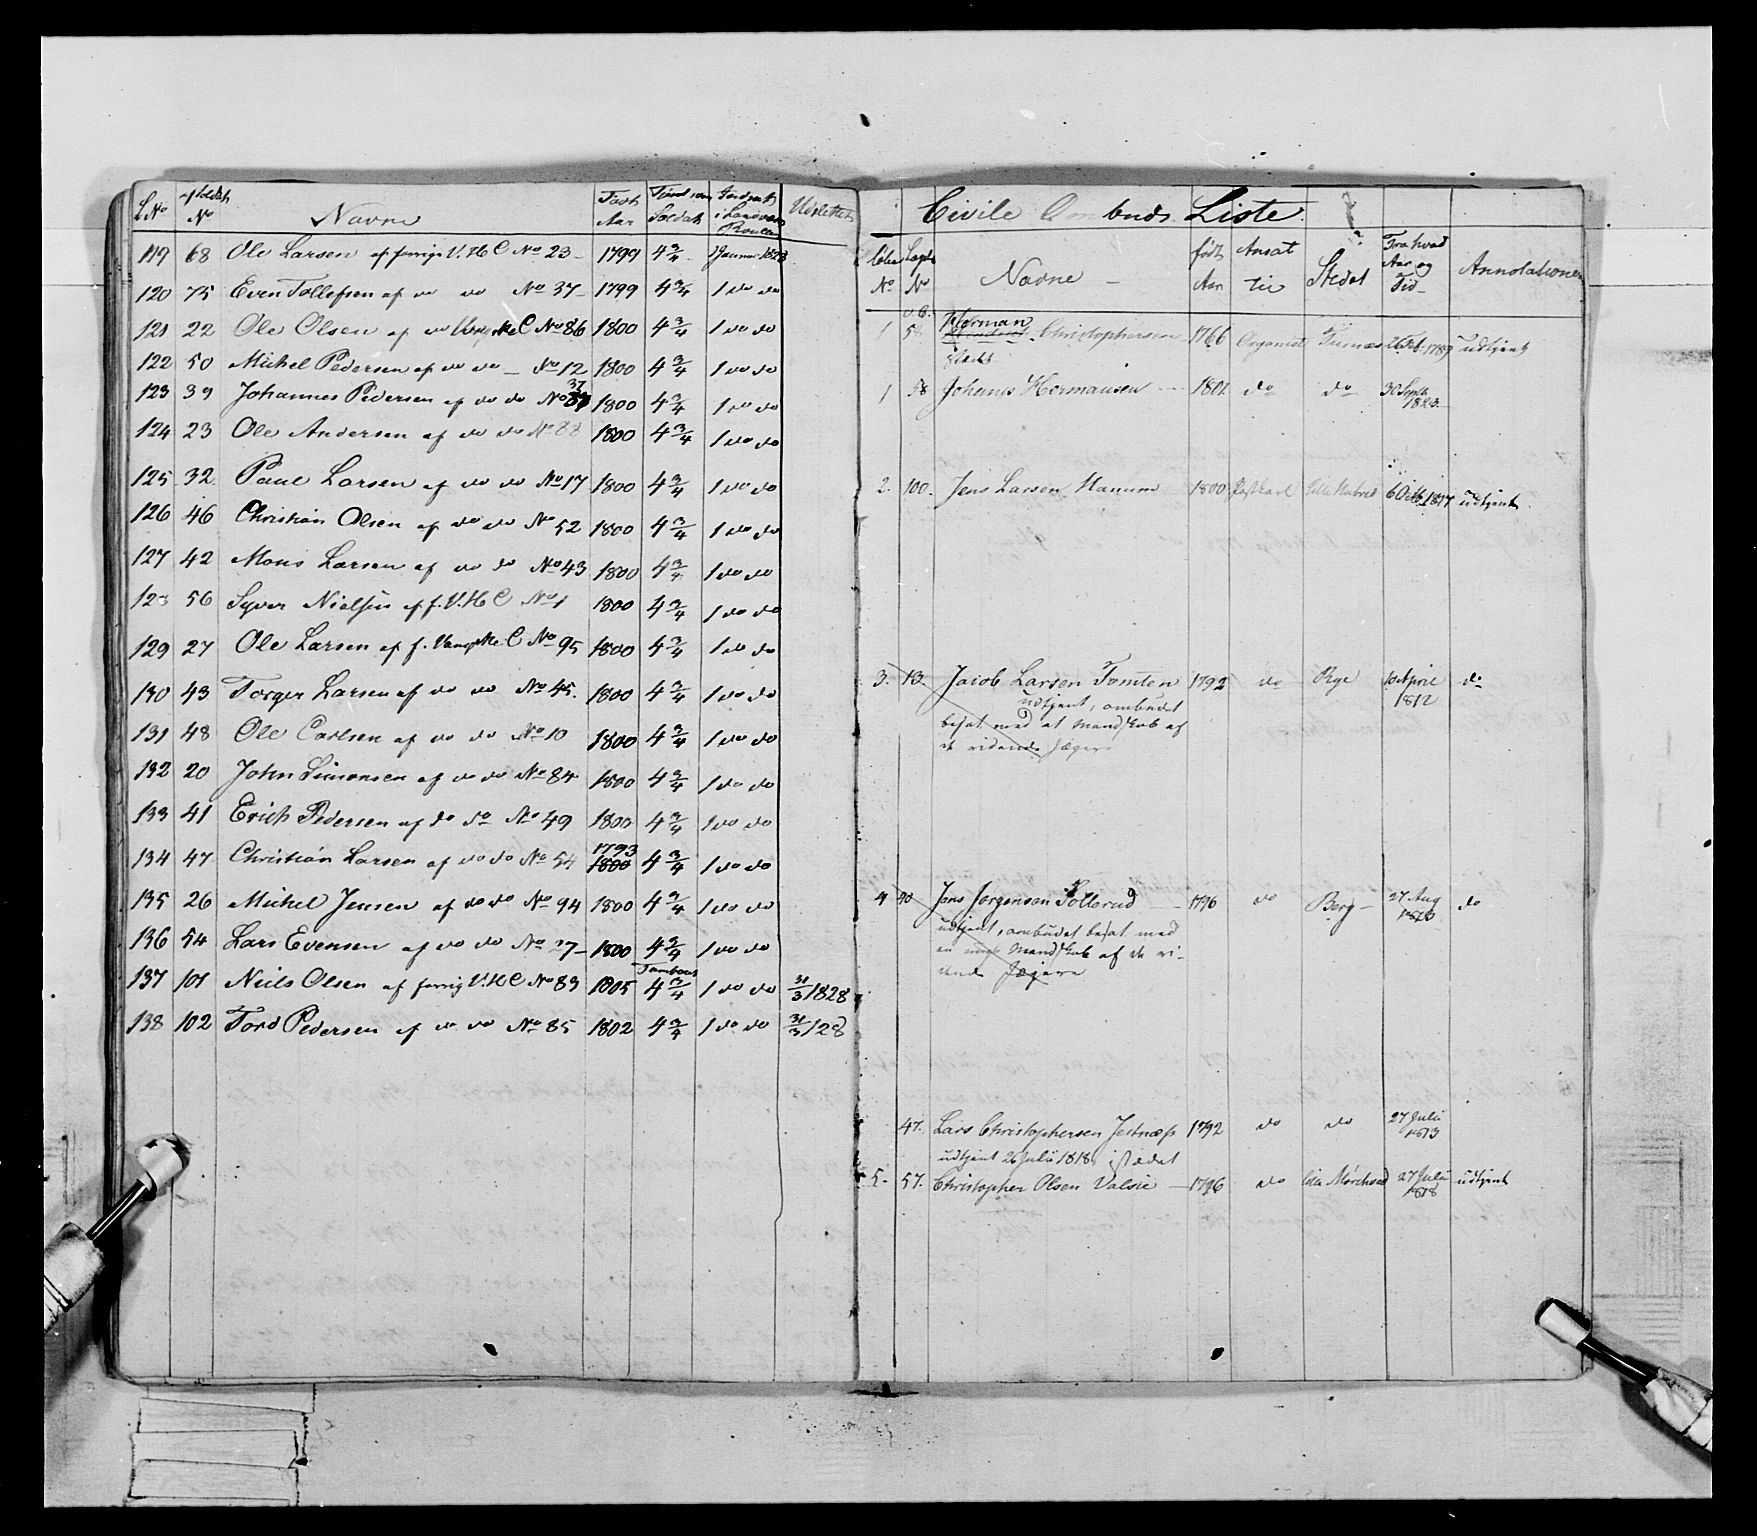 L No af Soldat No Navne Født Aar Tjent som Soldat Indsat i Landværns Roullen Udslettet
119 68 Ole Larsen af forrige V. H C No 23 - 1799 4 3/4 1 Januar 1823
120 75 Even Tollefsen af do do No 37 - 1799 4 3/4 1 do do
121 22 Ole Olsen af do C No 86 1800 4 3/4 1 do do
122 50 Mikkel Pedersen af do do - No 12 1800 4 3/4 1 do do
123 39 Johannes Pedersen af do do No 37 1800 4 3/4 1 do do
124 23 Ole Andersen af do do No 88 1800 4 3/4 1 do do
125 32 Paul Larsen af do do No 17 1800 4 3/4 1 do do
126 46 Christian Olsen af do do No 52 1800 4 3/4 1 do do
127 42 Mons Larsen af do do No 43 1800 4 3/4 1 do do
128 56 Syver Nielsen af f. V. H C No 1 1800 4 3/4 1 do do
129 27 Ole Larsen af f. Vangske C No 95 1800 4 3/4 1 do do
130 43 Torger Larsen af do do No 45. 1800 4 3/4 1 do do
131 48 Ole Carlsen af do do No 10 1800 4 3/4 1 do do
132 20 John Simonsen af do do No 84 1800 4 3/4 1 do do
133 41 Erich Pedersen af do do No 49 1800 4 3/4 1 do do
134 47 Christian Larsen af do do No 54 1793 1800 4 3/4 1 do do
135 26 Mickel Jensen af do do No 94 1800 4 3/4 1 do do
136 54 Lars Evensen af do do No 27 - 1800 4 3/4 1 do do
137 101 Niels Olsen af forrig V. H C No 83 1805 Tambour 4 3/4 1 do do 31/3 1828
138 102 Tord Pedersen af do do No 85 1802 4 3/4 1 do do 31/3 128
Civile Ombuds Liste.
No Lægds No Navne - født Aar Ansat til Stedet Fra hvad Aar og Tid Annotationer
1 58 Herman Christophersen 1766 Organist Furnæs 26 Feb 1789 udtjent
1 58 Johanes Hermansen - 1801 do do 30 Septb 1823.
2. 100. Jens Larsen Hanum 1800 Postkarl 6 Octb 1817 udtjent
3. 13. Jacob Larsen Tomten 1792 do Rye 10 April 1812 do
udtjent, ombudet
besat med at Mandskab af
de ridende Jægere
4 40 Jens Jørgensen Sollerud 1796 do Berg - 27 Aug 1813 do
udtjent, ombudet besat med
en Mandskab af de ri-
dende Jægere
47. Lars Christophersen Jestnæss 1792 do do 27 Juli 1813
udtjent 26 Julii 1818, istædet
5. 57. Christopher Olsen Valsie - 1796 do Lille Mørchved 27 Juli 1818 udtjent